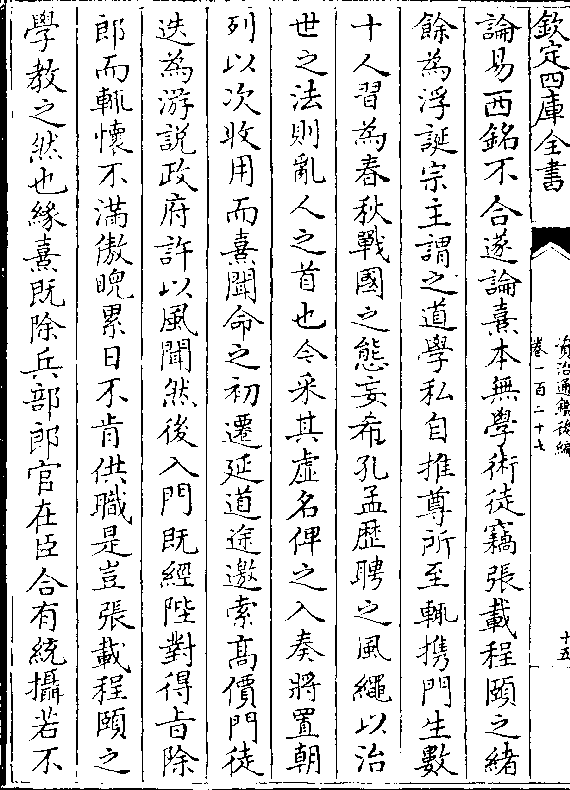 欽定四庫全書
資治通鑑後編
卷一百二十七
十五
論易西銘不合遂論熹本無學術徒竊張載程頤之緒
餘為浮誕宗主謂之道學私自推尊所至輒携門生數
十人習為春秋戰國之態妄希孔孟歴聘之風繩以治
世之法則亂人之首也今采其虛名俾之入奏將置朝
列以次收用而熹聞命之初遷延道途邀索高價門徒
迭為游説政府許以風聞然後入門既經陛對得旨除
郎而輒懷不滿傲睨累日不肯供職是豈張載程頤之
學教之然也緣熹既除兵部郎官在臣合有統攝若不